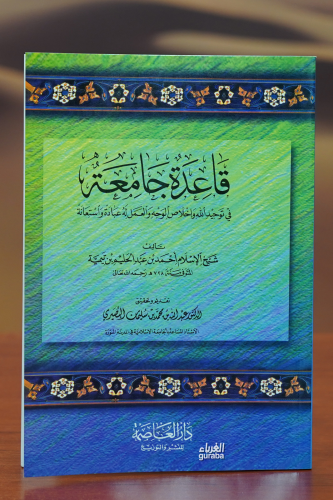 قَاعِدَةٌ جَامِعَةٌ
في توحيد الله وإخلاص الوجه والعمل له عبادة واستعانة
تأليف
شيخ الإسلام أحمد بن عبد الحليم بن تيمية
المتوفى سنة ٧٢٨ هـ رحمه الله تعالى
تقديم وتحقيق
الدكتور عبد الله بن محمد بن سليمان البصيري
الأستاذ المساعد بالجامعة الإسلامية في المدينة النبوية
دار العاصمة
للنشر والتوزيع
الغرباء
guraba